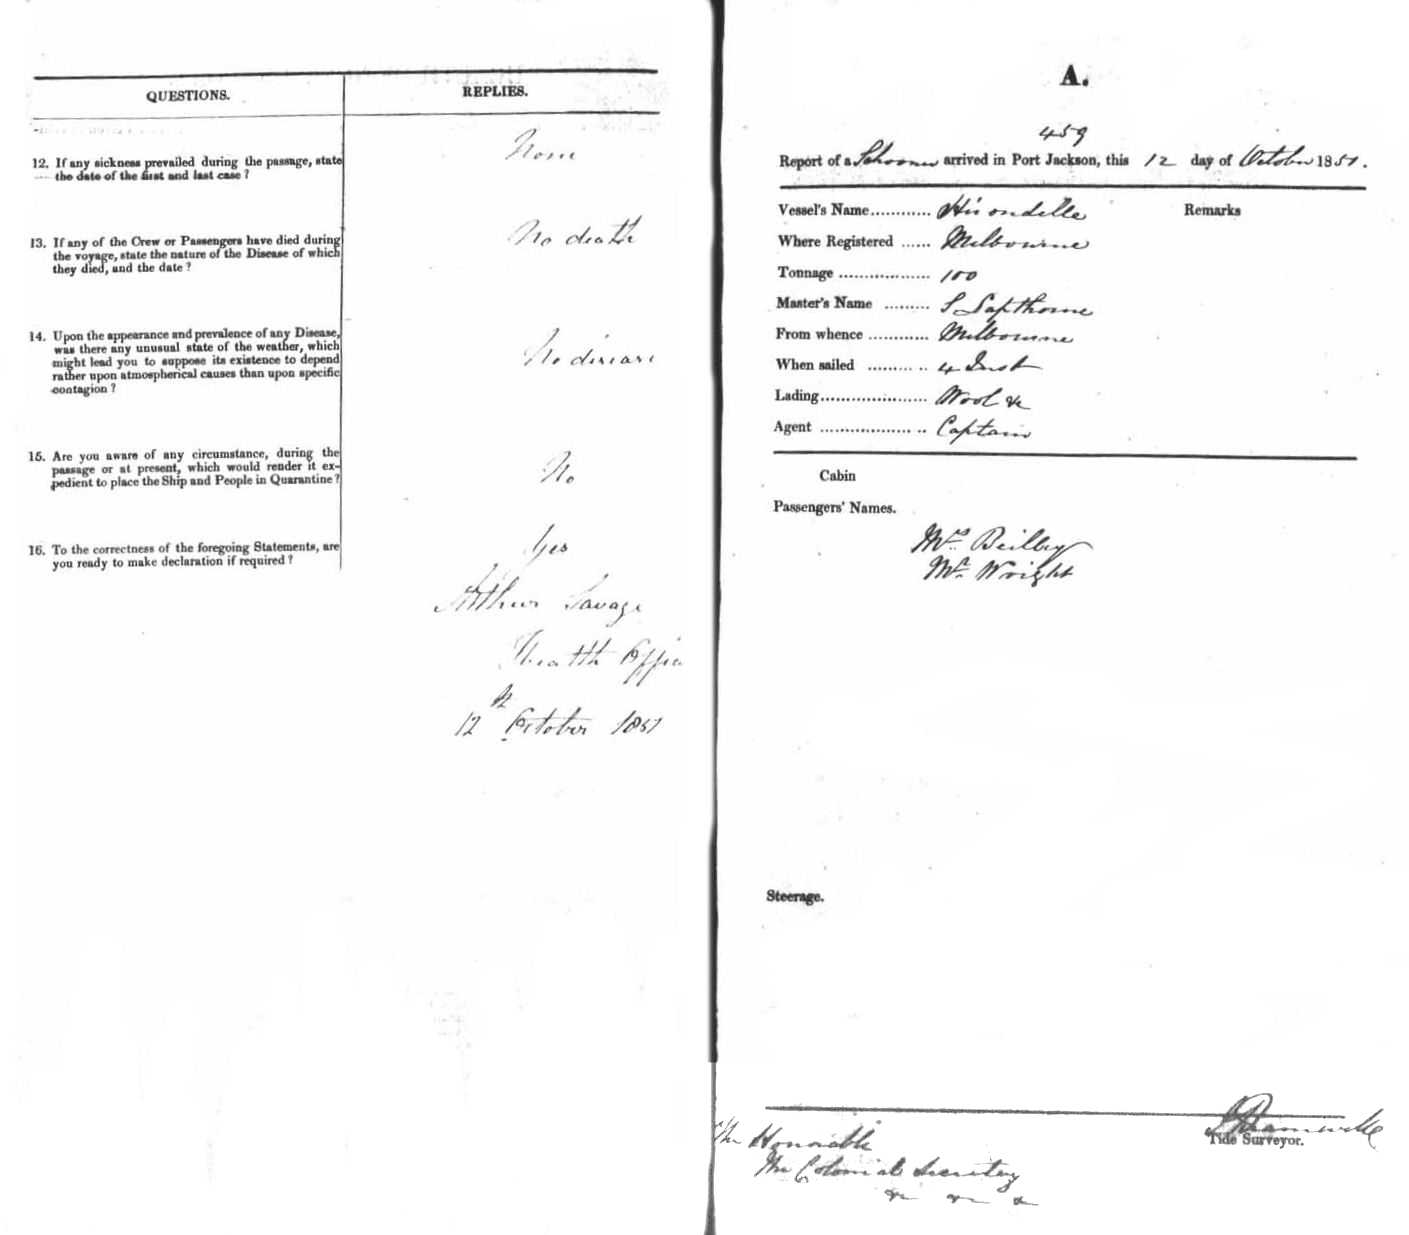 QUESTIONS.
REPLIES.
12. If any sickness prevailed during the passage, state
the date of the first and last case ?
None
13. If any of the Crew or Passengers have died during
the voyage, state the nature of the Disease of which
they died, and the date ?
No death
14. Upon the appearance and prevalence of any Disease,
was there any unusual state of the weather, which
might lead you to suppose its existence to depend
rather upon atmospherical causes than upon specific
contagion ?
No disease
15. Are you aware of any circumstance, during the
passage or at present, which would render it ex-
pedient to place the Ship and People in Quarantine ?
No
16. To the correctness of the foregoing Statements, are
you ready to make declaration if required ?
Yes
Arthur Savage
Health Offic
12th October 1851
A.
459
Report of a Schooner arrived in Port Jackson, this 12 day of October 1851.
Vessel's Name............ Hirondelle
Remarks
Where Registered ...... Melbourne
Tonnage .................. 100
Master's Name ......... S Lapthorne
From whence ............ Melbourne
When sailed ......... .. 4 Inst
Lading..................... Wool &c
Agent .................. .. Captain
Cabin
Passengers' Names.
Mrs. Beilby
Mr. Wright
Steerage.
Tide Surveyor.
The Honorable
The Colonial Secretary
&c &c &c